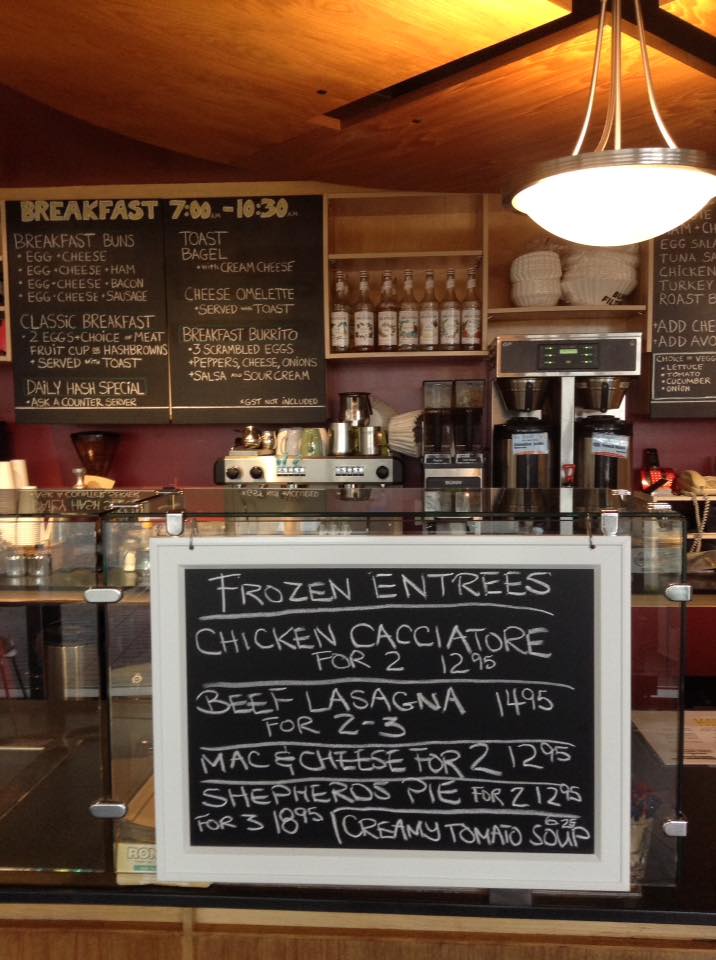 BREAKFAST 7:00AM-10:30AM
BREAKFAST BUNS
• EGG+CHEESE
• EGG+CHEESE+HAM
• EGG+CHEESE+BACON
• EGG+CHEESE+SAUSAGE
CLASSIC BREAKFAST
• 2 EGGS+CHOICE OF MEAT
FRUIT CUP OR HASHBROWNS
+ SERVED WITH TOAST
DAILY HASH SPECIAL
• ASK A COUNTER SERVER
TOAST
BAGEL
• WITH CREAM CHEESE
CHEESE OMELETTE
• SERVED WITH TOAST
BREAKFAST BURRITO
• 3 SCRAMBLED EGGS
+PEPPERS, CHEESE, ONIONS
• SALSA AND SOUR CREAM
*GST NOT INCLUDED
EGG SALA
TUNA SA
CHICKEN
TURKEY
ROAST B
+ADD CHE
+ADD AVO
CHOICE OF VEGG
• LETTUCE
• TOMATO
• CUCUMBER
• ONION
BUNN
FROZEN ENTREES
CHICKEN CACCIATORE
FOR 2 12.95
BEEF LASAGNA 14.95
FOR 2-3
MAC & CHEESE FOR 2 12.95
SHEPHERDS PIE FOR 2 12.95
FOR 3 18.95 CREAMY TOMATO SOUP 6.25